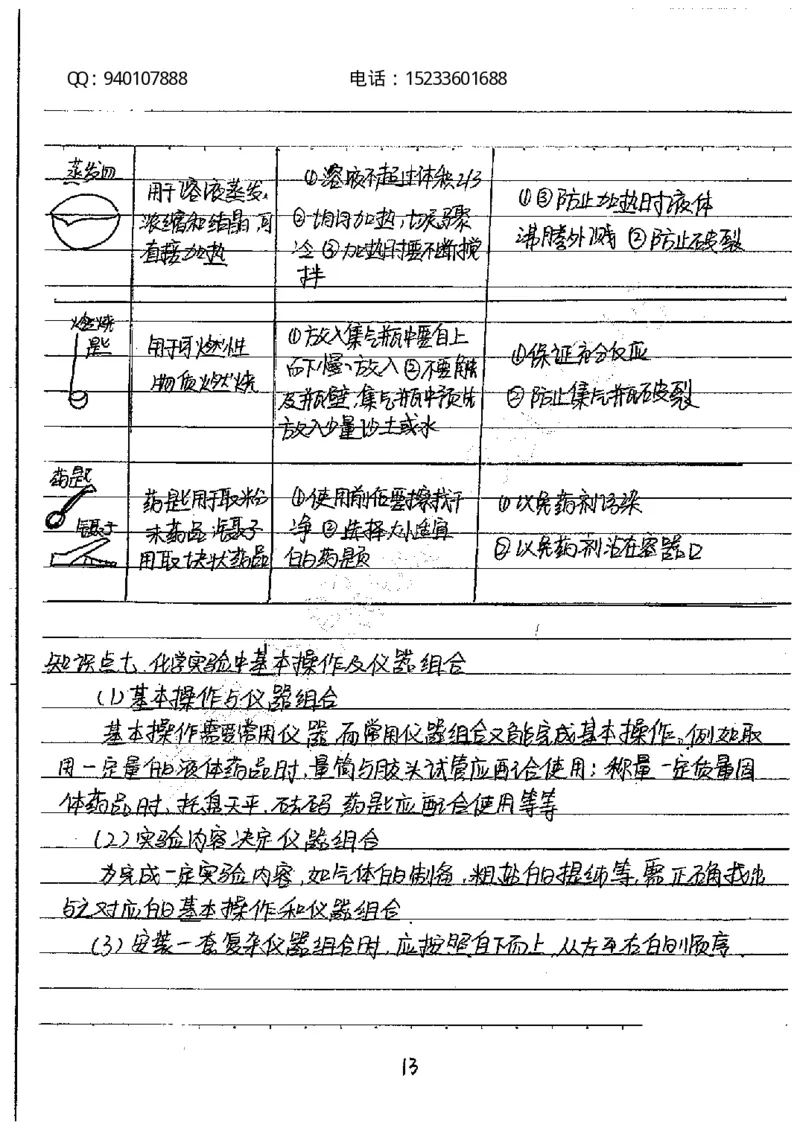 QQ：940107888 电话：15233601688
蒸发皿
用于溶液蒸发、
浓缩和结晶,可
直接加热
①溶液不超过体积2/3
②均匀加热,切忌骤
冷 ③加热时要不断搅
拌
①③防止加热时液体
沸腾外溅 ②防止破裂
燃烧
匙
用于可燃性
物质燃烧
①放入集气瓶中要自上
而下慢慢放入②不要触
及瓶壁,集气瓶中预先
放入少量沙土或水
①保证充分反应
②防止集气瓶破裂
药匙
镊子
药匙用于取粉
末药品 镊子
用取块状药品
①使用前后要擦拭干
净 ②选择大小适宜
的药匙
①以免药剂污染
②以免药剂沾在容器口
知识点七、化学实验中基本操作及仪器组合
(1)基本操作与仪器组合
基本操作需要常用仪器,而常用仪器组合又能完成基本操作。例如取
用一定量的液体药品时,量筒与胶头试管应配合使用；称量一定质量固
体药品时,托盘天平、砝码、药匙应配合使用等等
(2)实验内容决定仪器组合
为完成一定实验内容,如气体的制备,粗盐的提纯等,需正确找出
与之对应的基本操作和仪器组合
(3)安装一套复杂仪器组合时,应按照自下而上,从左至右的顺序.
13